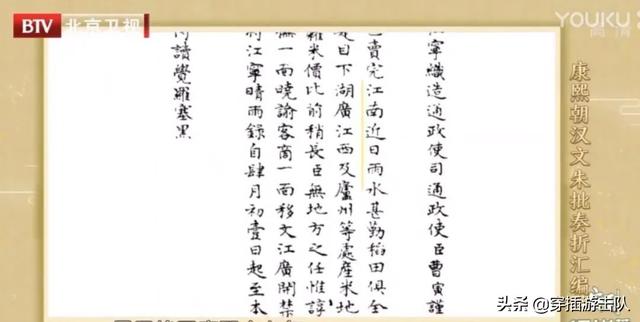 BTV 北京卫视
YOUKU
康熙朝汉文朱批奏折汇编
寧織造通政使司通政使臣曹寅謹
已賣完江南近日雨水甚勤稻田俱全
是目下湖廣江西及廬州等處產米地
糴米價比前稍長臣無地方之任惟諄
撫一面曉諭客商一面移文江廣開禁
將江寧晴雨錄自肆月初壹日起至本
侍讀覺羅塞黑
头条 @穿插游击队